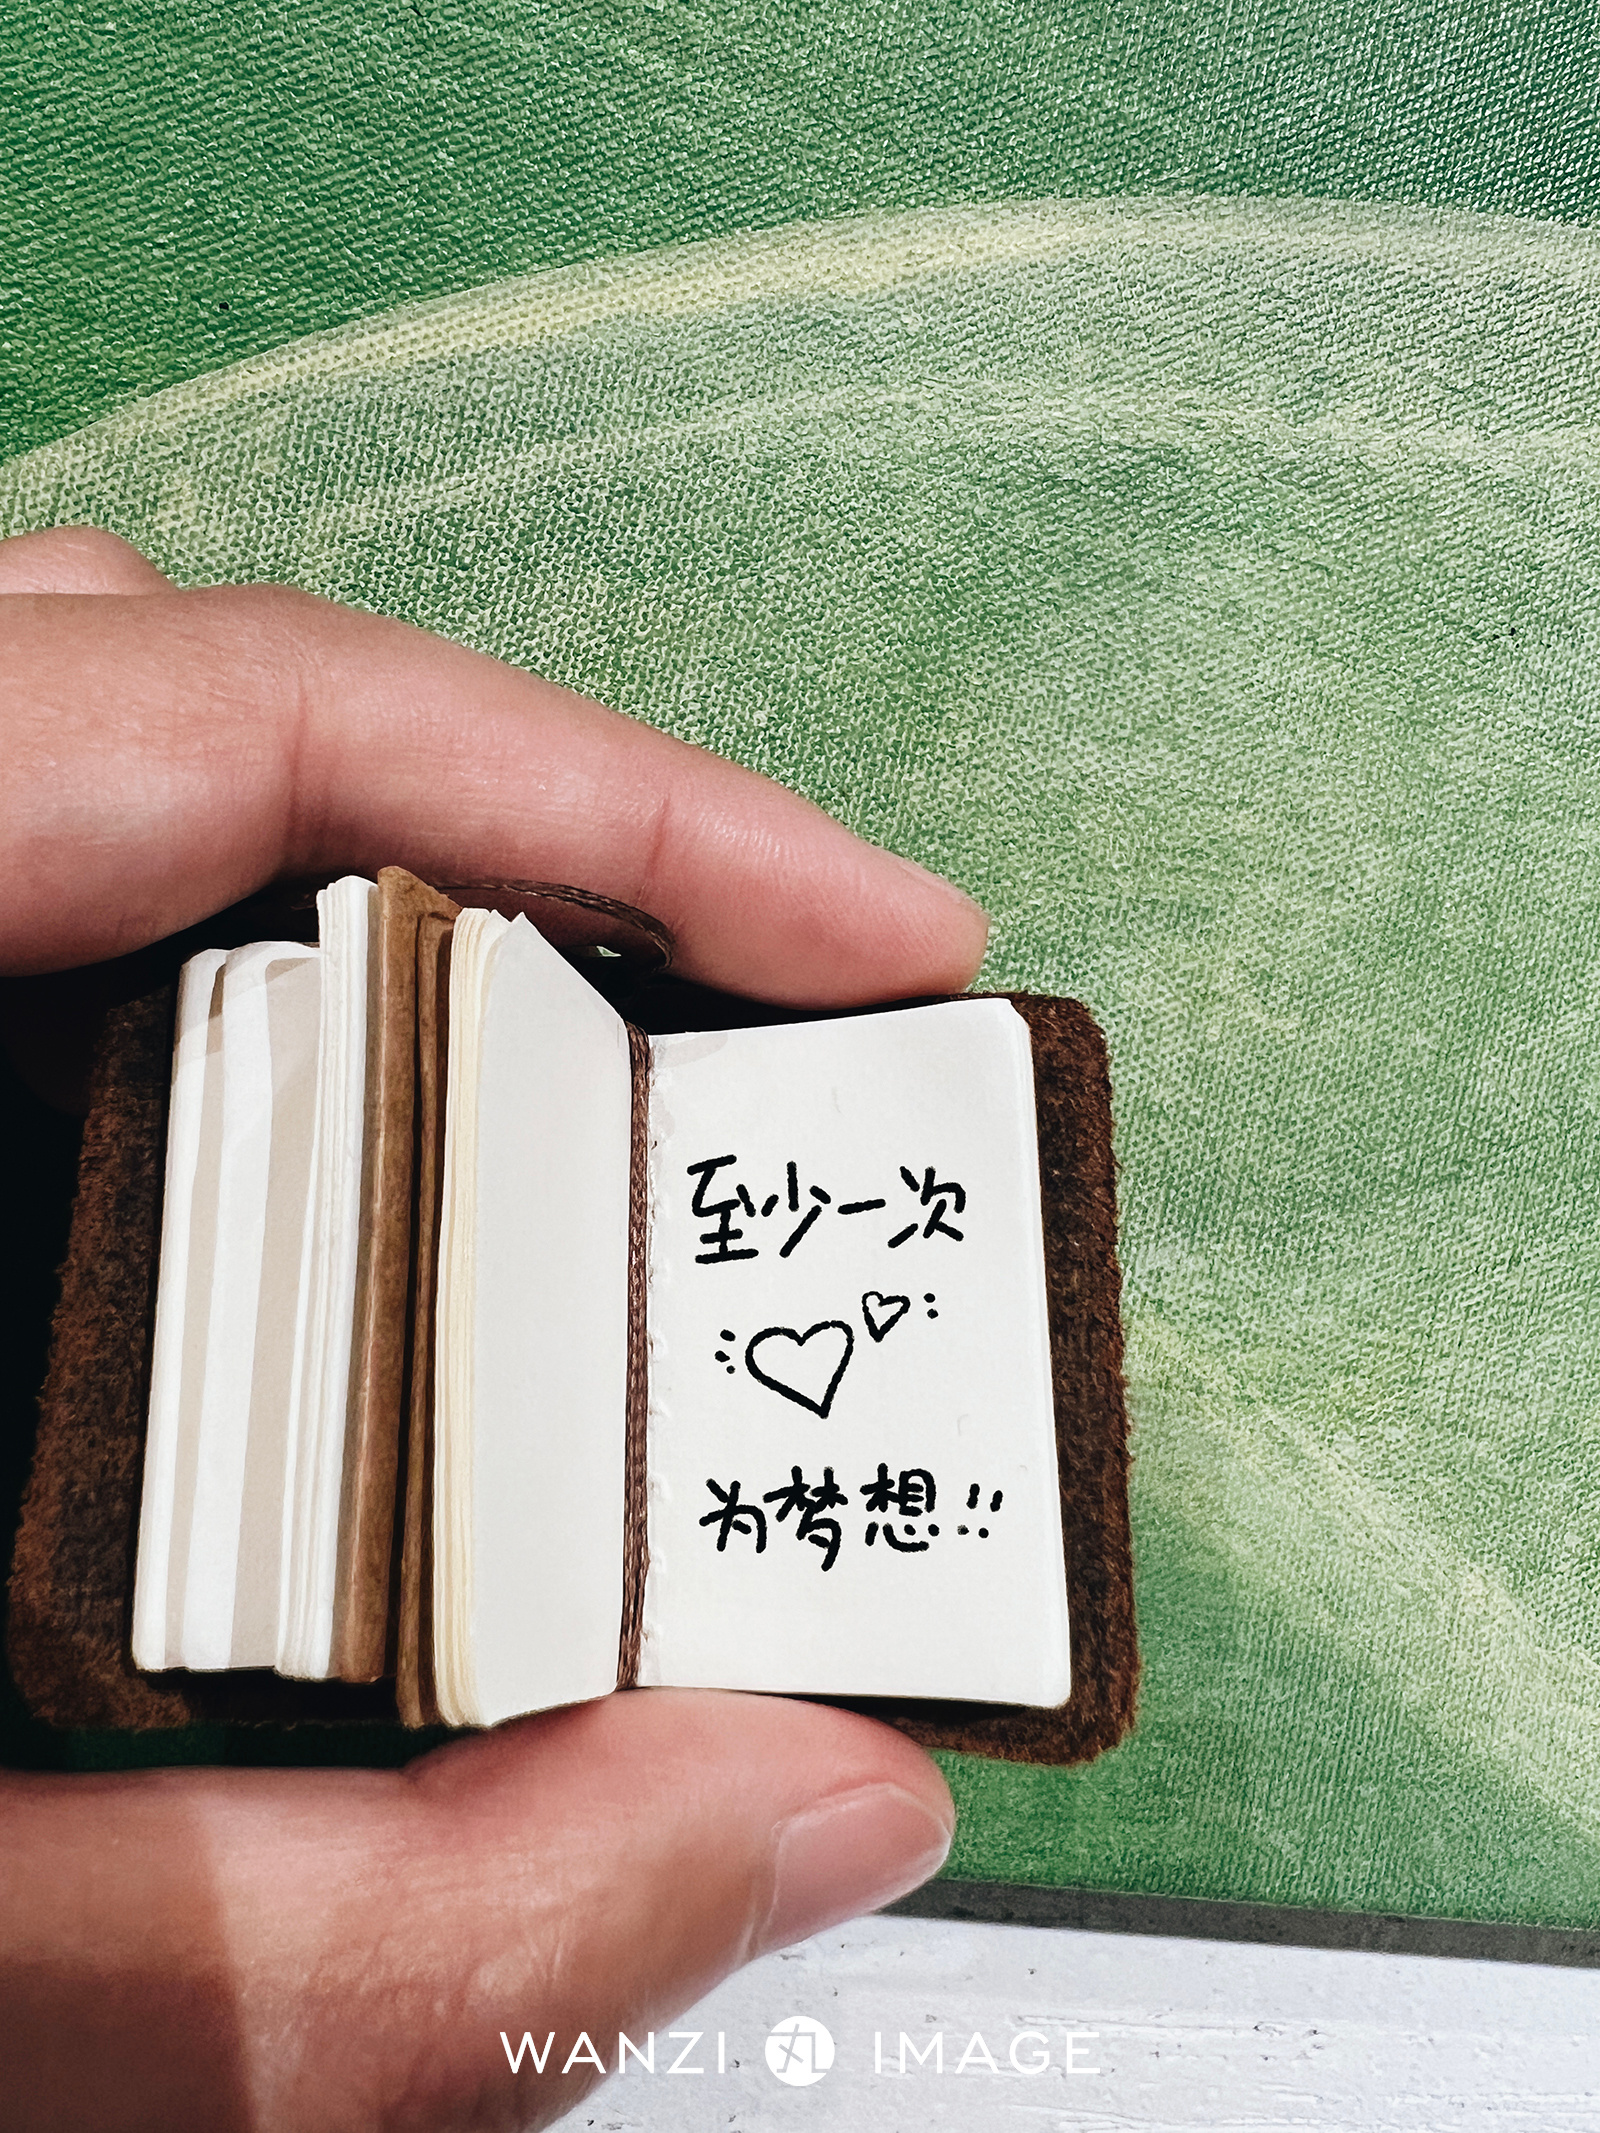 至少一次
为梦想!!
WANZI 丸 IMAGE